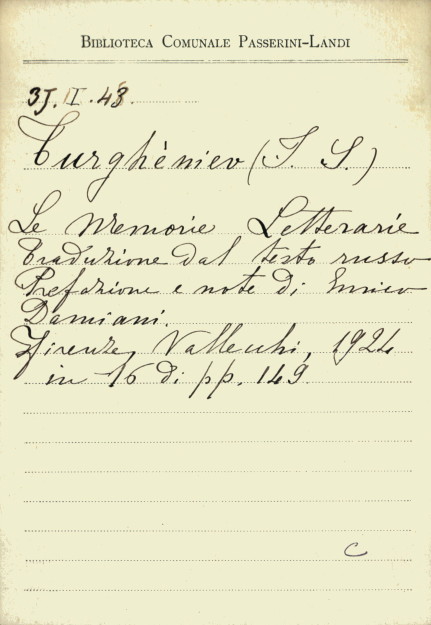 BIBLIOTECA COMUNALE PASSERINI-LANDI
3J.II.48
Turghèniev (I. S.)
Le Memorie Letterarie
Traduzione dal testo russo
Prefazione e note di Enrico
Damiani.
Firenze, Vallecchi, 1924
in 16 di pp. 149.
C